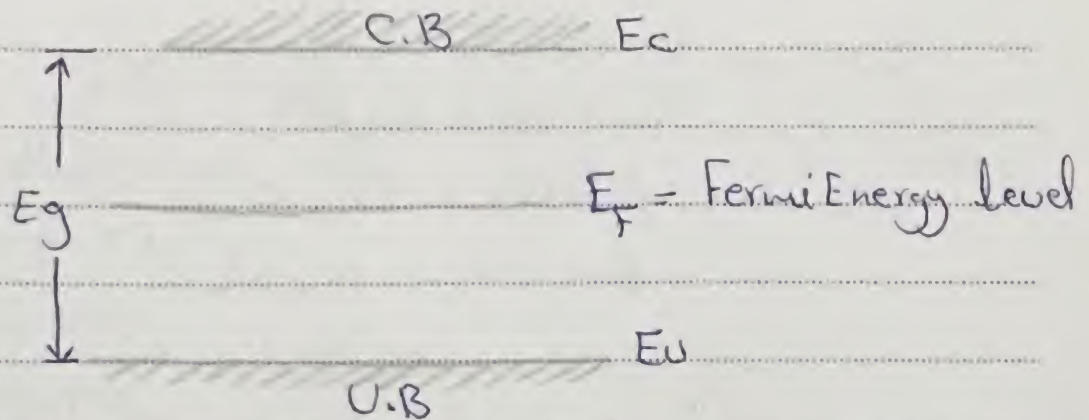 C.B Ec
Eg
E_f = Fermi Energy level
Ev
V.B